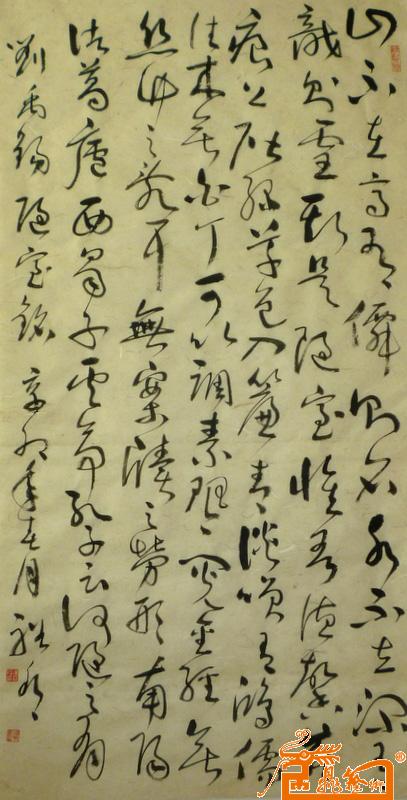 山不在高有僊則名水不在深有
龍則靈斯是陋室惟吾德馨苔
痕上階綠草色入簾青談咲有鴻儒
往来無白丁可以調素琴閱金經無
丝竹之乱耳無案牘之勞形南陽
诸葛廬西蜀子雲亭孔子云何陋之有
劉禹錫陋室銘辛卯年春月